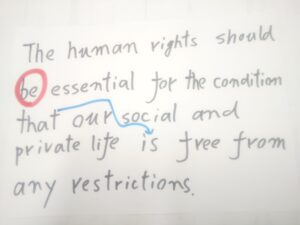 The human rights should
be essential for the condition
that our social and
private life is free from
any restrictions.